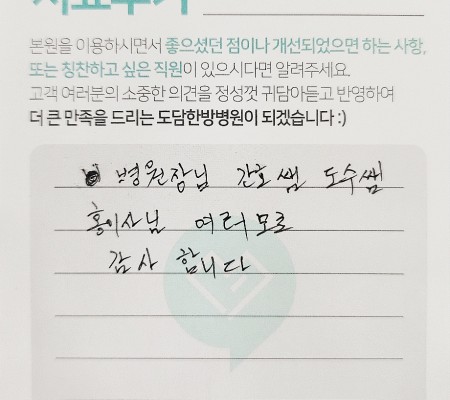 치료후기
본원을 이용하시면서 좋으셨던 점이나 개선되었으면 하는 사항,
또는 칭찬하고 싶은 직원이 있으시다면 알려주세요.
고객 여러분의 소중한 의견을 정성껏 귀담아듣고 반영하여
더 큰 만족을 드리는 도담한방병원이 되겠습니다 :)
병원장님 간호쌤 도수쌤
홍이사님 여러모로
감사 합니다